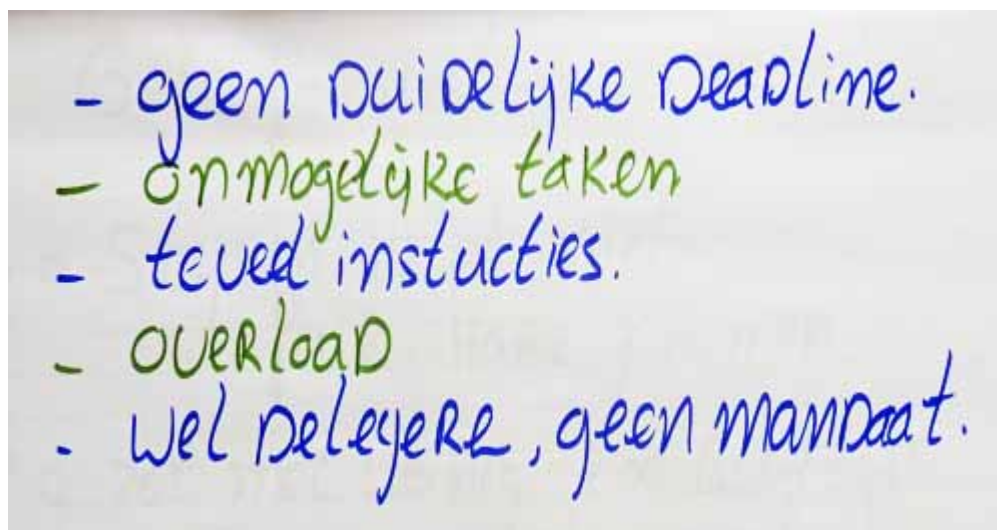 - geen Duidelijke Deadline.
- onmogelijke taken
- teveel instucties.
- overload
- wel Delegere, geen manDaat.